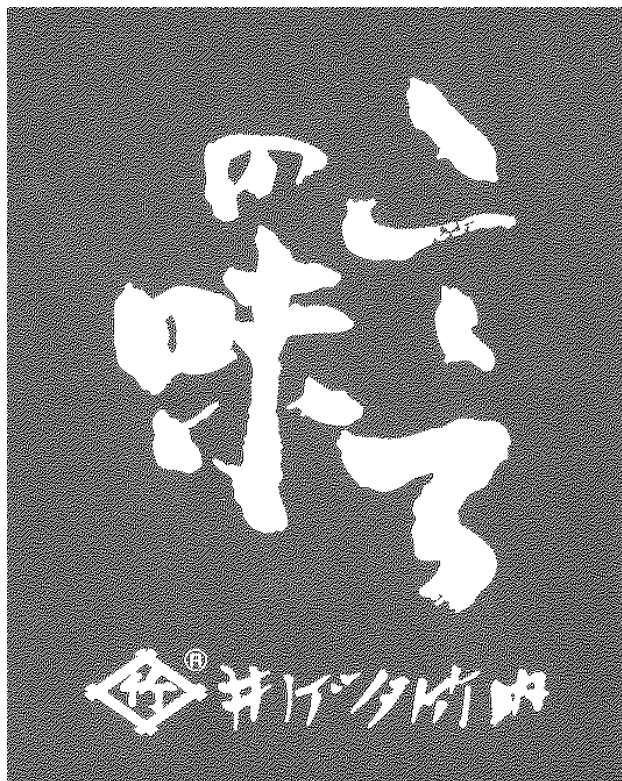 こゝろ
の味
竹® 井ゲタ竹内